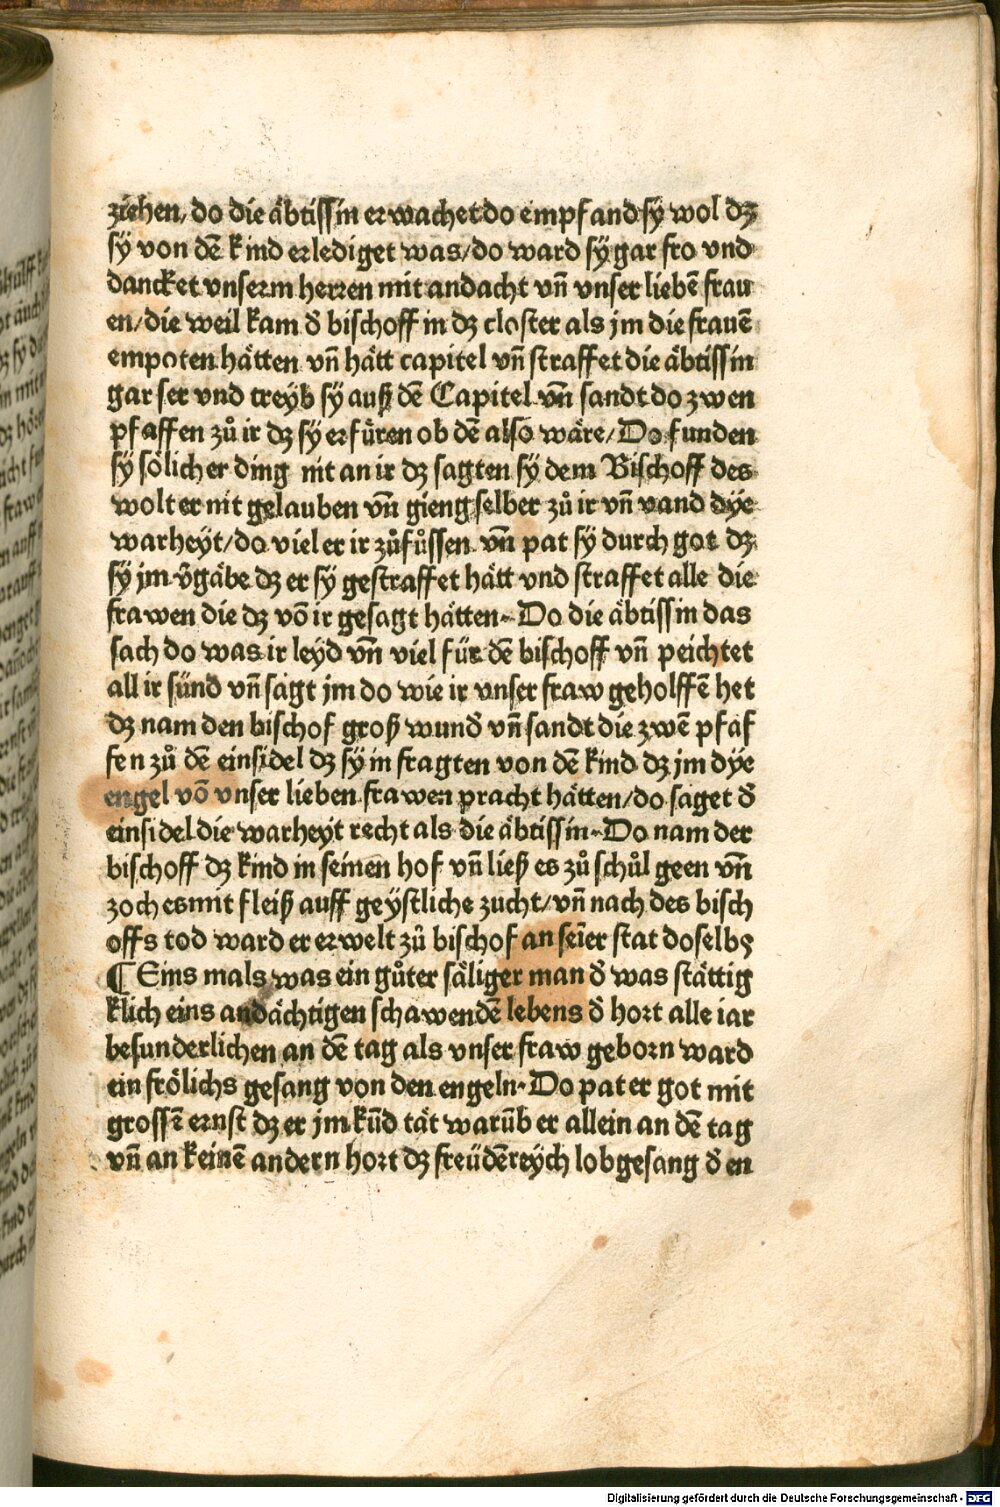 ziehen, do die äbtissin erwachet do empfand sÿ wol dꝫ
sÿ von dē kind erlediget was/do ward sÿ gar fro vnd
dancket vnserm herren mit andacht vn̄ vnser liebē frau
en/die weil kam đ bischoff in dꝫ closter als jm die frauē
empoten hätten vn̄ hätt capitel vn̄ straffet die äbtissin
gar ser vnd treyb sÿ auß dē Capitel vn̄ sandt do zwen
pfaffen zů ir dꝫ sÿ erfüren ob dē also wäre/Do funden
sÿ sölicher ding nit an ir dꝫ sagten sÿ dem Bischoff des
wolt er nit gelauben vn̄ gieng selber zů ir vn̄ vand dÿe
warheÿt/do viel er ir zůfůssen vn̄ pat sÿ durch got dꝫ
sÿ jm v̄gäbe dꝫ er sÿ gestraffet hätt vnd straffet alle die
frawen die dꝫ vō ir gesagt hätten. Do die äbtissin das
sach do was ir leÿd vn̄ viel für dē bischoff vn̄ peichtet
all ir sünd vn̄ sagt jm do wie ir vnser fraw geholffē het
dꝫ nam den bischof groß wunđ vn̄ sandt die zwē pfaf
fen zů dē einsidel dꝫ sÿ in fragten von dē kind dꝫ jm dÿe
engel vō vnser lieben frawen pracht hätten/do saget đ
einsidel die warheÿt recht als die äbtissin. Do nam der
bischoff dꝫ kind in seinen hof vn̄ ließ es zů schůl geen vn̄
zoch es mit fleiß auff geÿstliche zucht/vn̄ nach des bisch
offs tod ward er erwelt zů bischof an seīer stat doselbꝫ
¶ Eins mals was ein gůter säliger man đ was stättig
klich eins andächtigen schawendē lebens đ hort alle iar
besunderlichen an dē tag als vnser fraw geborn ward
ein frölichs gesang von den engeln. Do pat er got mit
grossē ernst dꝫ er jm kūd tät warūb er allein an dē tag
vn̄ an keinē andern hort dꝫ freüdēreÿch lobgesang đ en
Digitalisierung gefördert durch die Deutsche Forschungsgemeinschaft - DFG